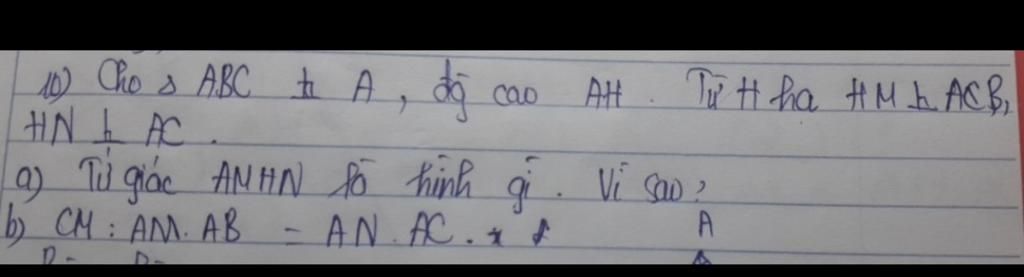 10) Cho Δ ABC ⊥ A, đg cao AH. Từ H hạ HM ⊥ AB,
HN ⊥ AC.
a) Tứ giác AMHN là hình gì. Vì sao?
b) CM: AM.AB = AN.AC.
A